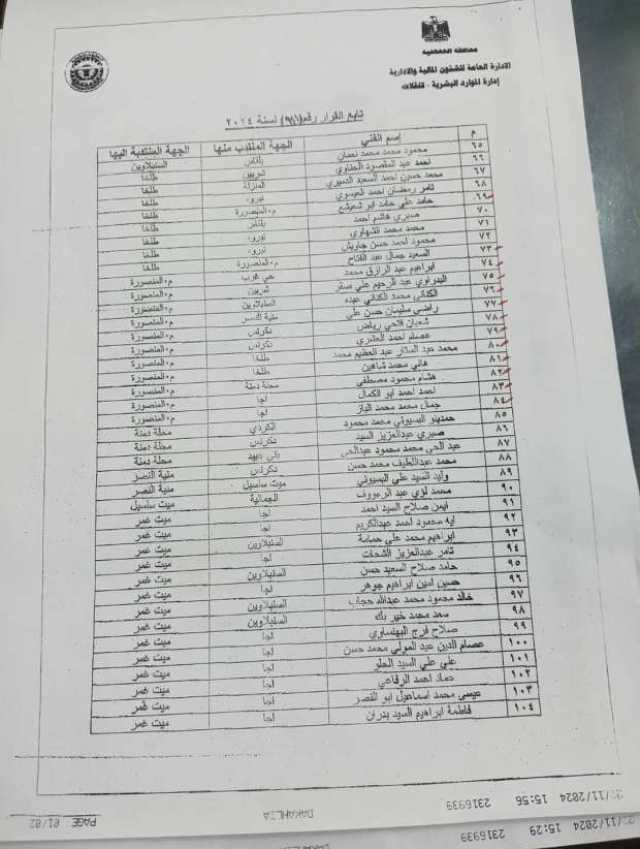 محافظة الدقهلية
الإدارة العامة للشئون المالية والإدارية
إدارة الموارد البشرية - تنقلات
تابع القرار رقم (٩٩١) لسنة ٢٠٢٤
م إسم الفني الجهة المنتدب منها الجهة المنتدب اليها
٦٥ محمود محمد محمد نعمان بلقاس السنبلاوين
٦٦ احمد عبد المقصود الحطاوي طلخا
٦٧ محمد حسن احمد السعيد المنزلة طلخا
٦٨ تامر رمضان احمد نبروه طلخا
٦٩ حامد علي حامد ابو م.المنصورة طلخا
٧٠ صبري هاشم احمد بلقاس طلخا
٧١ محمد محمد نبروه طلخا
٧٢ محمود احمد حسن جاويش نبروه طلخا
٧٣ السعيد جمال عبد الفتاح م.المنصورة طلخا
٧٤ ابراهيم عبد الرازق محمد حي غرب م.المنصورة
٧٥ عبد الرحيم علي م.المنصورة
٧٦ محمد الكناني عبده السنبلاوين م.المنصورة
٧٧ راضي سليمان حسن علي منية النصر م.المنصورة
٧٨ شعبان فتحي رياض تكرنس م.المنصورة
٧٩ عصام احمد تكرنس م.المنصورة
٨٠ محمد عبد الستار عبد العظيم محمد طلخا م.المنصورة
٨١ هاني محمد شاهين طلخا م.المنصورة
٨٢ هشام محمود مصطفي محلة دمنة م.المنصورة
٨٣ احمد احمد ابو الكمال اجا م.المنصورة
٨٤ جمال محمد محمد الباز اجا م.المنصورة
٨٥ حمدينو البسيوني محمد محمود الكردي محلة دمنة
٨٦ صبري عبدالعزيز السيد تكرنس محلة دمنة
٨٧ عبد الحي محمد محمود عبدالحي بني عبيد محلة دمنة
٨٨ محمد عبداللطيف محمد حسن تكرنس منية النصر
٨٩ وليد السيد علي البسيوني ميت سلسيل منية النصر
٩٠ محمد لؤي عبد الرءوف الجمالية ميت سلسيل
٩١ ايمن صلاح السيد احمد اجا ميت غمر
٩٢ ايه محمود احمد عبدالكريم اجا ميت غمر
٩٣ ابراهيم محمد علي حمامة السنبلاوين ميت غمر
٩٤ تامر عبدالعزيز الشحات اجا ميت غمر
٩٥ حامد صلاح السعيد حسن السنبلاوين ميت غمر
٩٦ حسين امين ابراهيم جوهر اجا ميت غمر
٩٧ خالد محمود محمد عبدالله حجاب السنبلاوين ميت غمر
٩٨ سعد محمد خير بك السنبلاوين ميت غمر
٩٩ صلاح فرج البهنساوي اجا ميت غمر
١٠٠ عصام الدين عبد المولي محمد حسن اجا ميت غمر
١٠١ علي علي السيد الحلو اجا ميت غمر
١٠٢ عماد احمد الرفاعي اجا ميت غمر
١٠٣ عيسى محمد اسماعيل ابو النصر اجا ميت غمر
١٠٤ فاطمة ابراهيم السيد بدران اجا ميت غمر
/11/2024 15:56 2316939 DAKAHLIA PAGE 01/02
/11/2024 15:29 2316939 DAKAHLIA